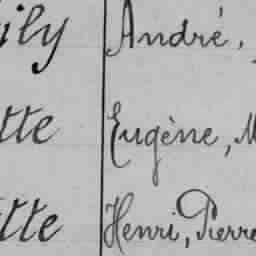 ily André,
tte Eugène, M
tte Henri, Pierre